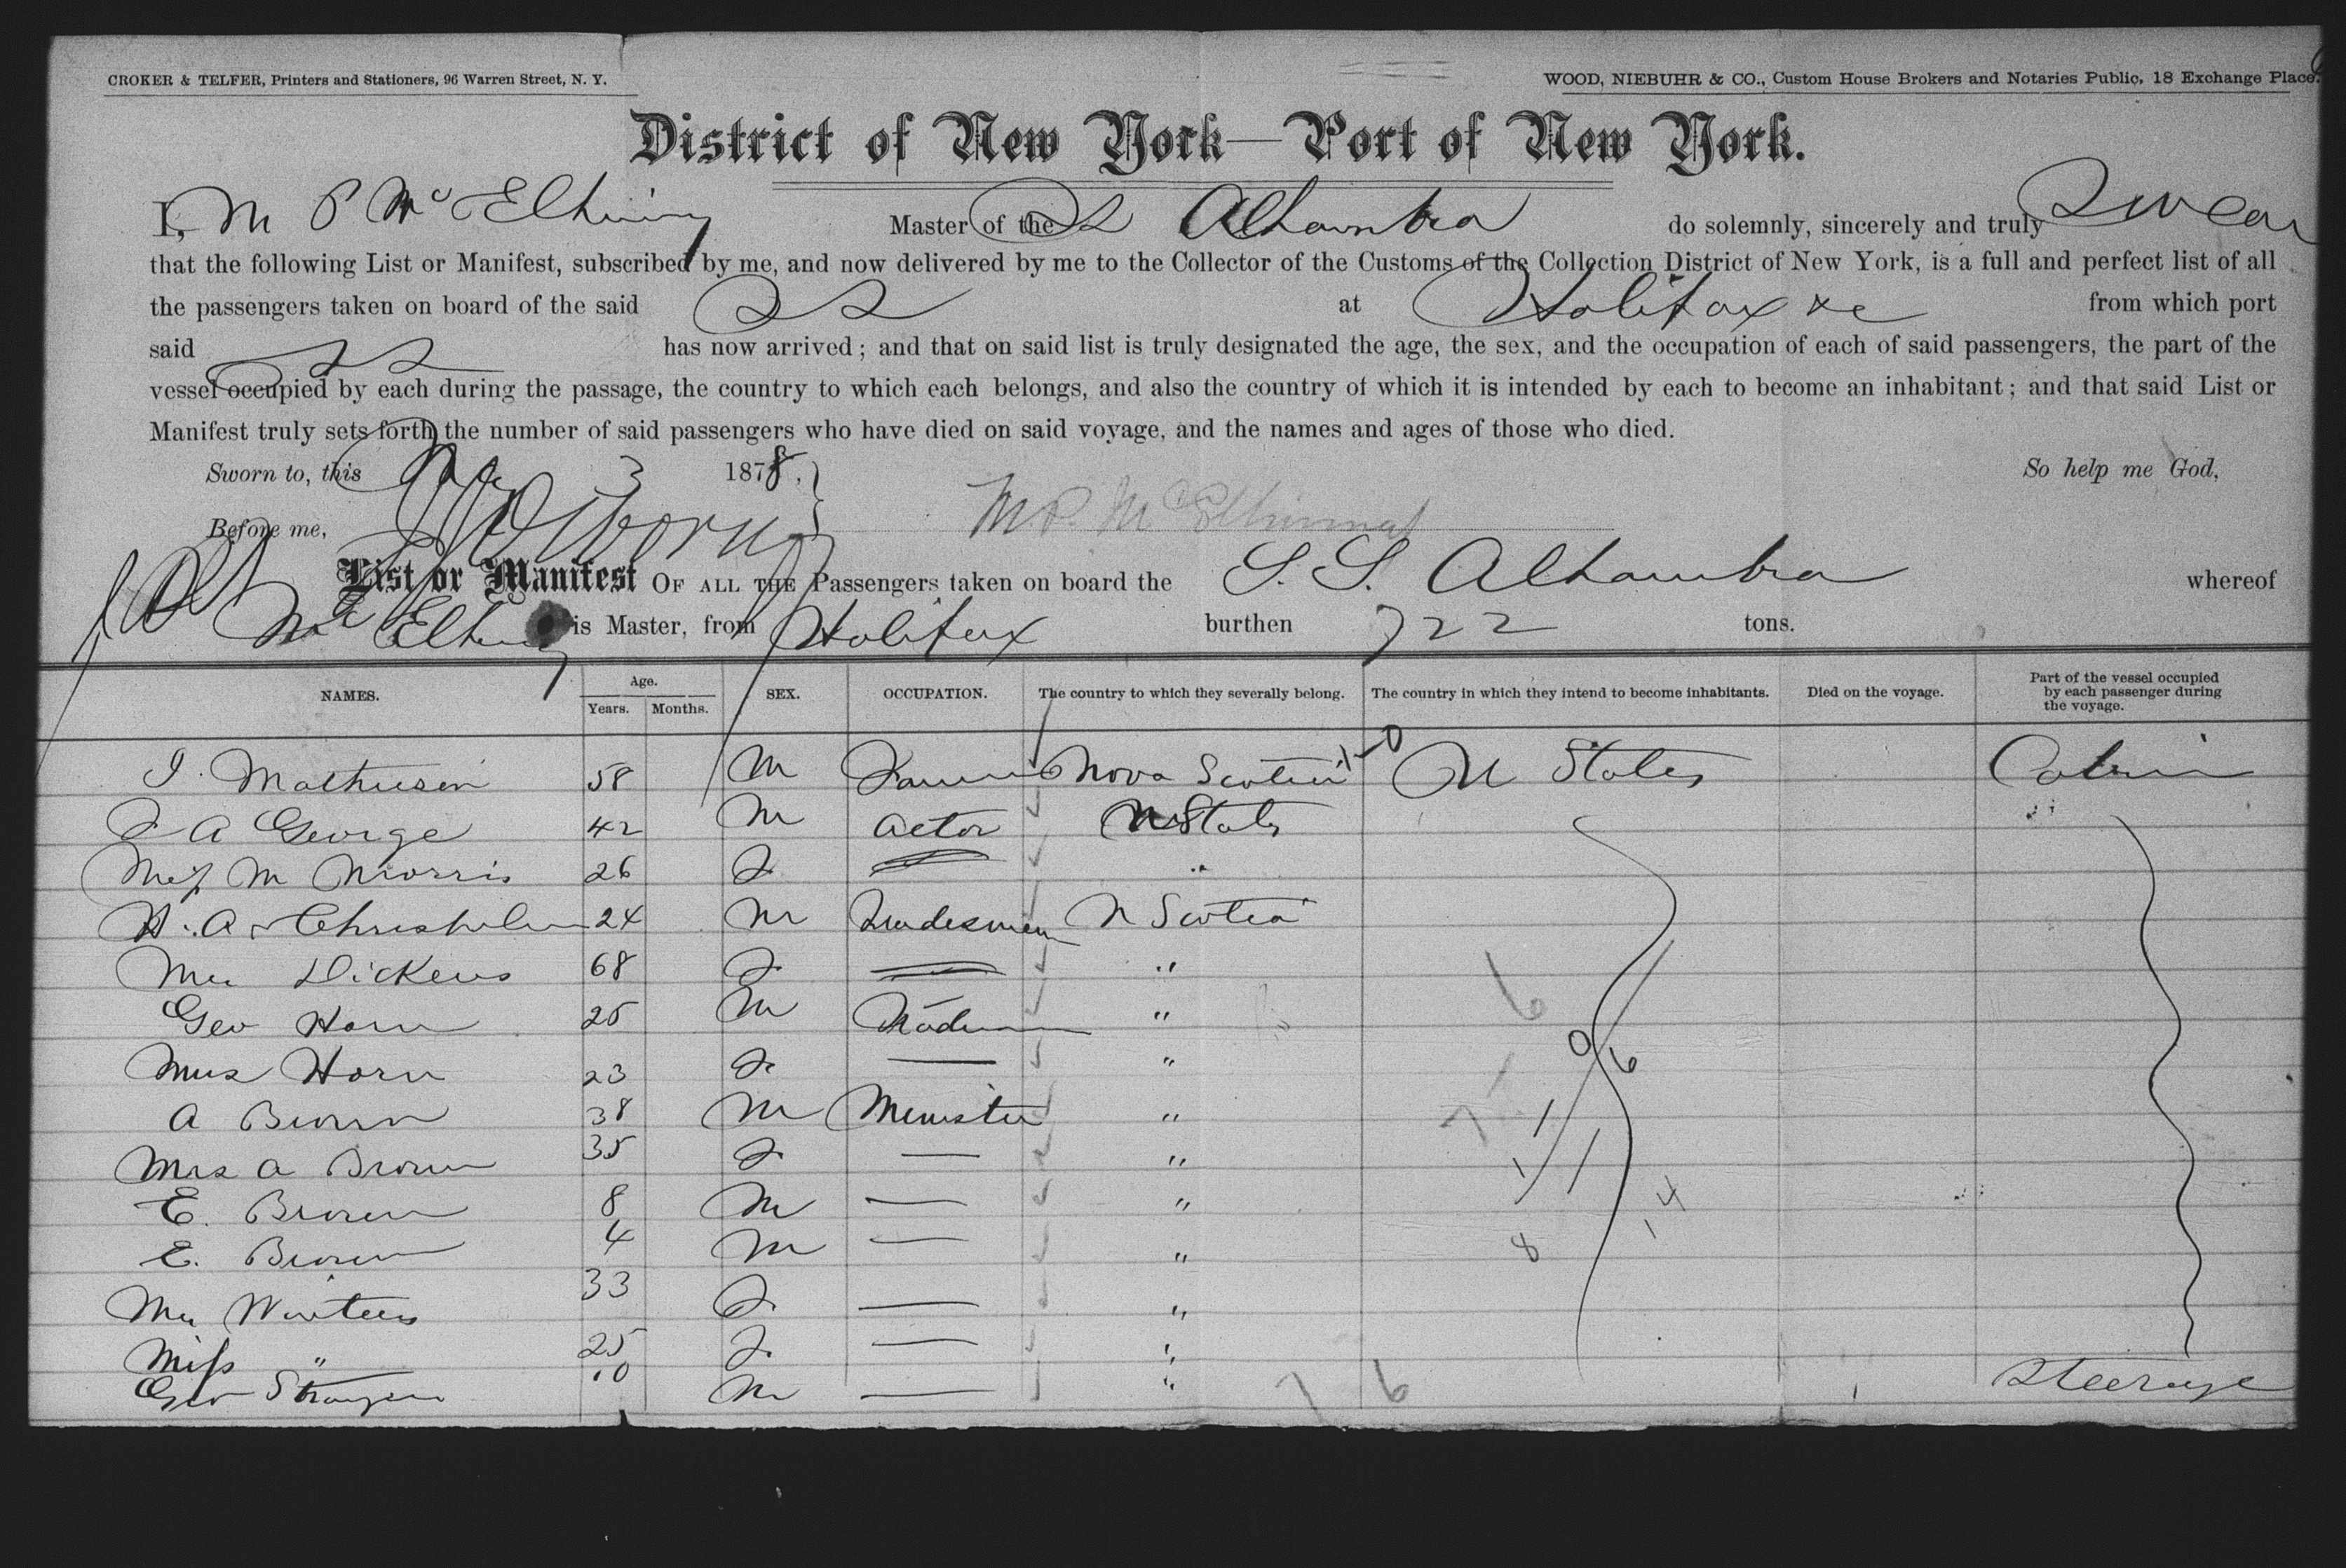 CROKER & TELFER, Printers and Stationers, 96 Warren Street, N. Y.
WOOD, NIEBUHR & CO., Custom House Brokers and Notaries Public, 18 Exchange Place.
District of New York—Port of New York.
I, M P McElhinny Master of the SS Alhambra do solemnly, sincerely and truly Swear
that the following List or Manifest, subscribed by me, and now delivered by me to the Collector of the Customs of the Collection District of New York, is a full and perfect list of all
the passengers taken on board of the said SS at Halifax from which port
said SS has now arrived; and that on said list is truly designated the age, the sex, and the occupation of each of said passengers, the part of the
vessel occupied by each during the passage, the country to which each belongs, and also the country of which it is intended by each to become an inhabitant; and that said List or
Manifest truly sets forth the number of said passengers who have died on said voyage, and the names and ages of those who died.
Sworn to, this 3 1878, So help me God,
Before me, M P. McElhinney
List or Manifest OF ALL THE Passengers taken on board the S. S. Alhambra whereof
McElhinny is Master, from Halifax burthen 722 tons.
NAMES. Age. Years. Months. SEX. OCCUPATION. The country to which they severally belong. The country in which they intend to become inhabitants. Died on the voyage. Part of the vessel occupied by each passenger during the voyage.
58 M Nova Scotia U States Cabin
A George 42 M Actor U States "
Miss M Morris 26 F "
24 M Tradesman N Scotia
Dickens 68 F "
Geo Horn 25 M "
Mrs Horn 23 F — "
A Brown 38 M Minister "
Mrs A Brown 35 F — "
E. Brown 8 M — "
E. Brown 4 M — "
33 F — "
Miss " 25 F — "
Geo 10 M — " Steerage